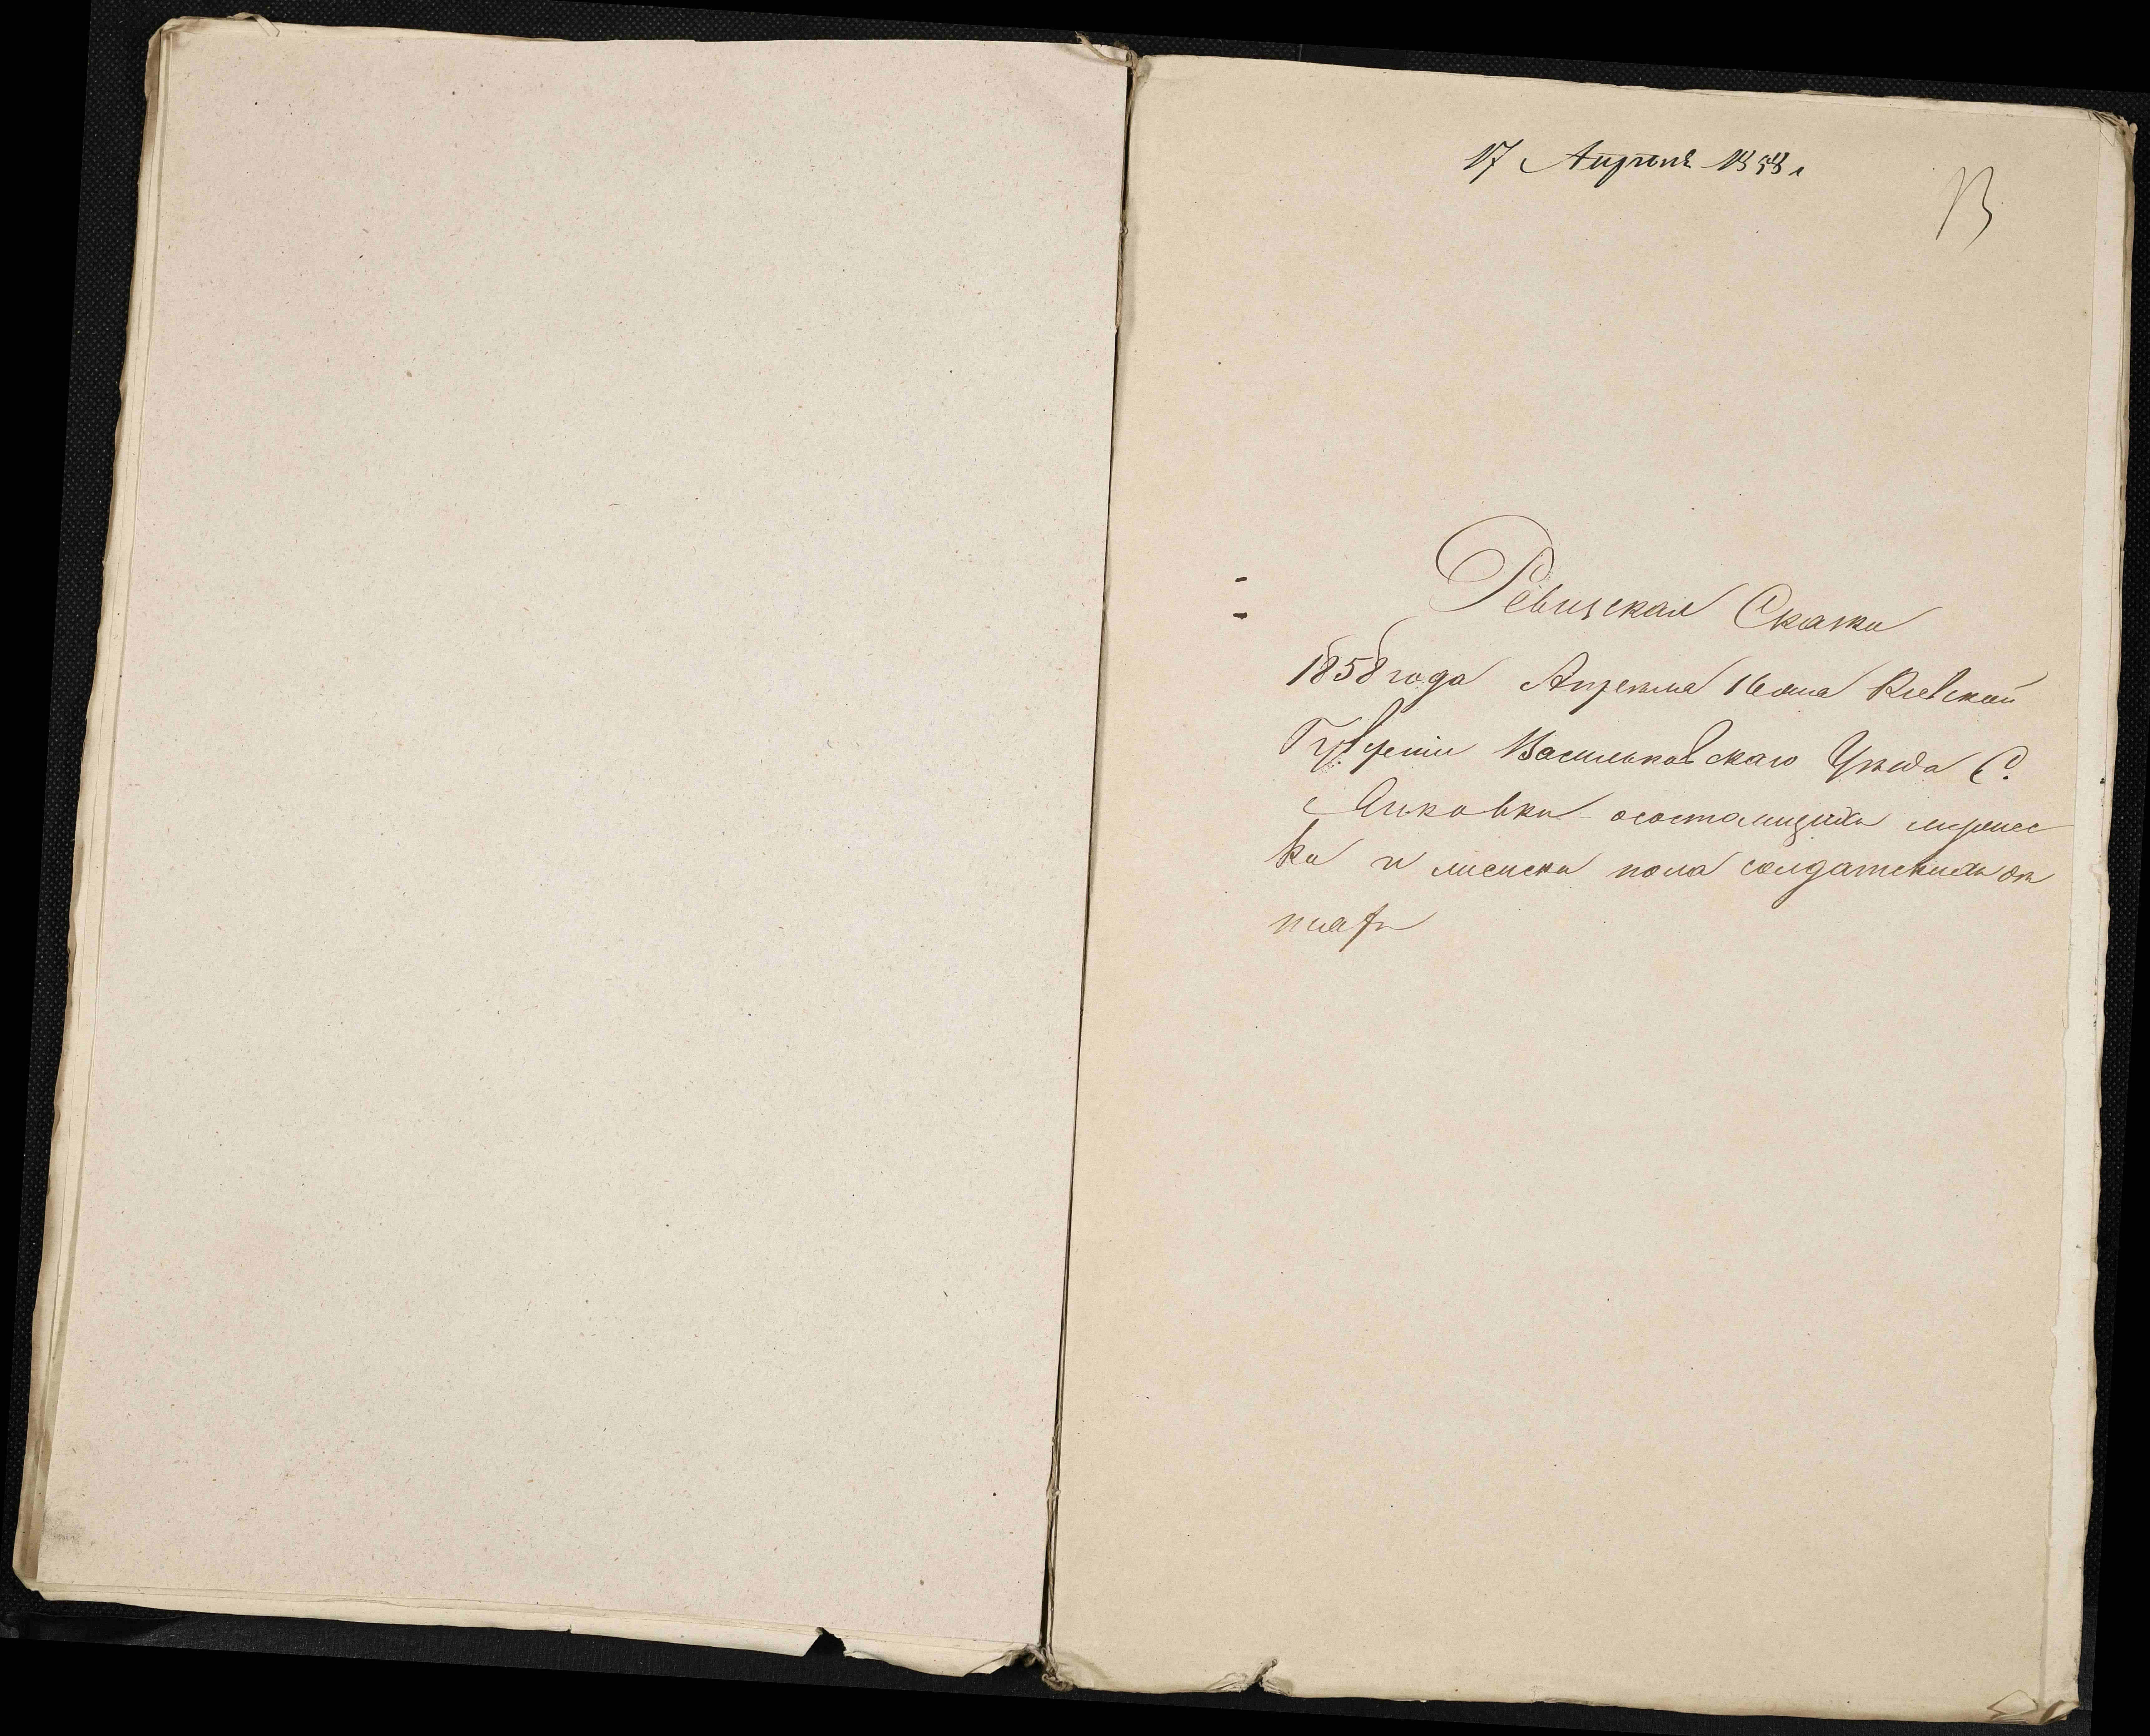 17 Апрѣля 1858 г
13
Ревизская Сказка
1858 года Апреля 16 дня Киевской
Губернии Васильковского Уезда С.
Янковки о состоящихъ мужес
ка и женска пола солдатскихъ дѣ
тяхъ